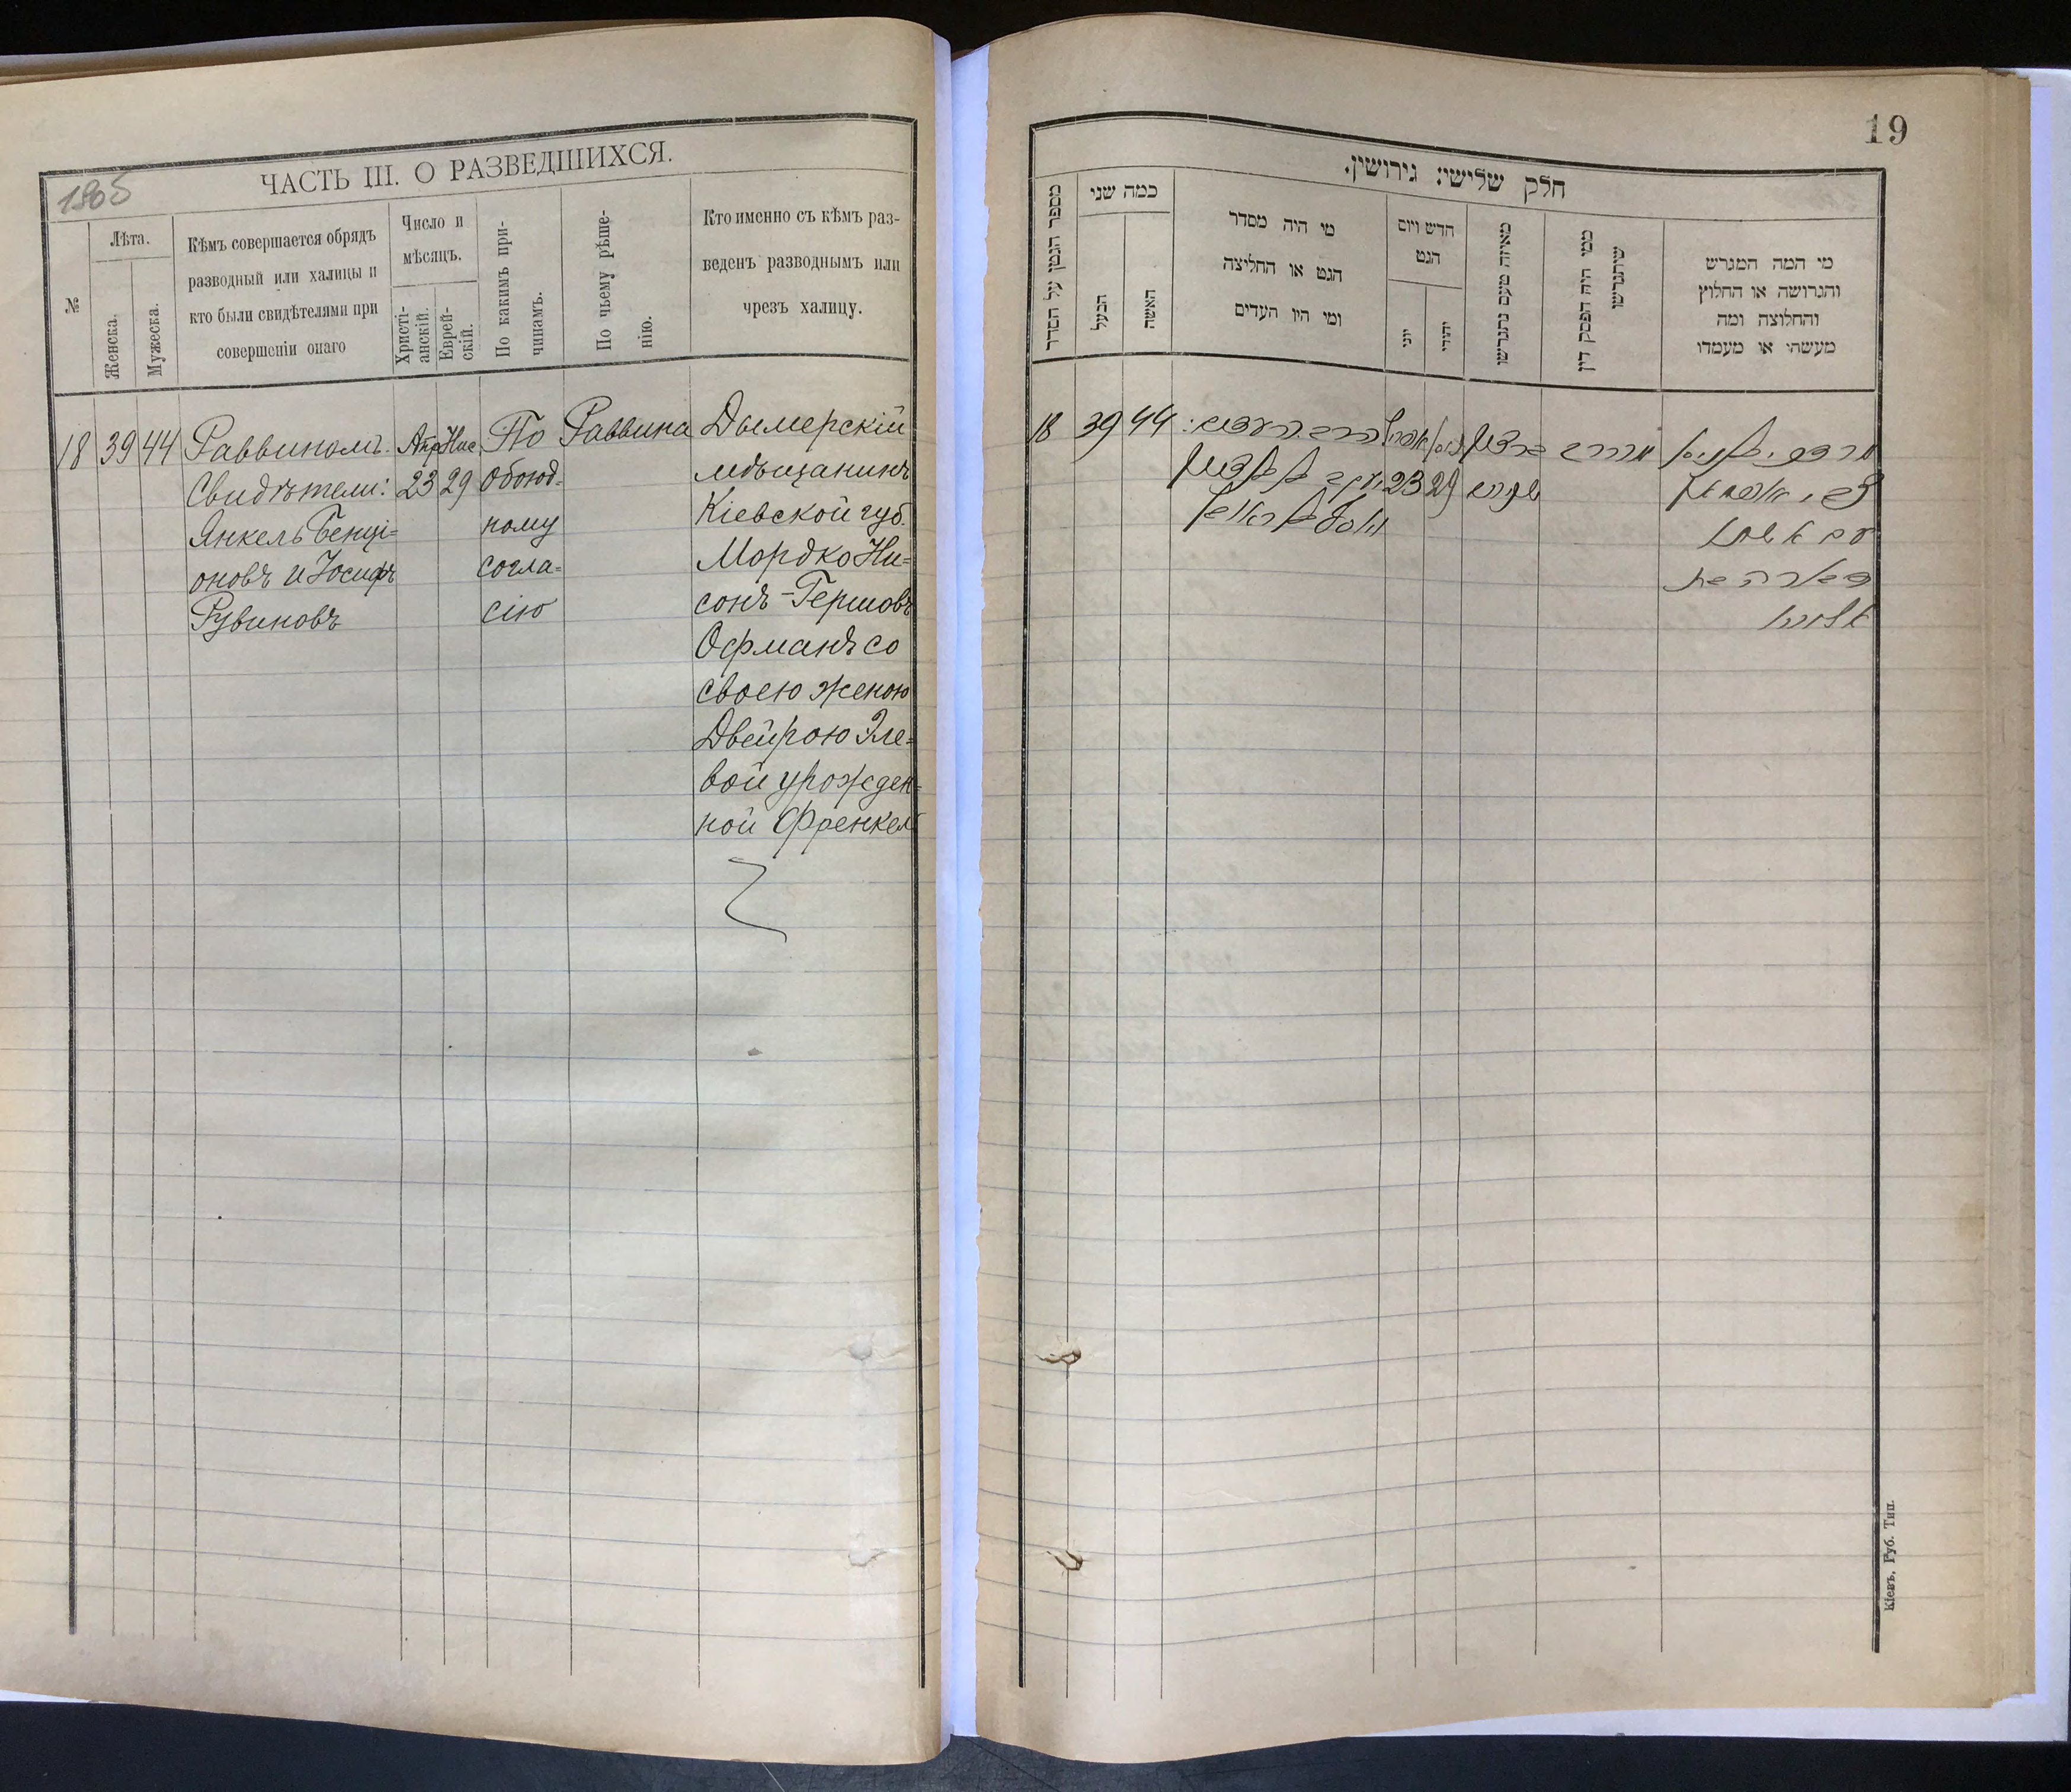 1905
ЧАСТЬ III. О РАЗВЕДШИХСЯ.
№
Лѣта.
Женска.
Мужеска.
Кѣмъ совершается обрядъ
разводный или халицы и
кто были свидѣтелями при
совершеніи онаго
Число и
мѣсяцъ.
Христі-
анскій.
Еврей-
скій.
По какимъ при-
чинамъ.
По чьему рѣше-
нію.
Кто именно съ кѣмъ раз-
веденъ разводнымъ или
чрезъ халицу.
18
39
44
Раввиномъ.
Свидѣтели:
Янкель Бенці=
оновъ и Іосифъ
Рувиновъ
Апр
23
Нис.
29
По
обоюд-
ному
согла=
сію
Раввина
Дымерскій
мѣщанинъ
Кіевской губ.
Мордко Ни=
сонъ-Гершовъ
Офманъ со
своею женою
Двейрою Эле=
вой урожден=
ной Френкель
19
חלק שלישי: גירושין.
מספר הגטן על הסדר
כמה שני
הבעל
האשה
מי היה מסדר
הגט או החליצה
ומי היו העדים
חדש ויום
הגט
יוני
יהודי
מאיזה טעם נתגרשו
ממי היה הפסק דין
שיתגרשו
מי המה המגרש
והגרושה או החלוץ
והחלוצה ומה
מעשהו או מעמדו
18
39
44
הרב. העדים:
23
29
ברצון
מהרב
עם אשתו
Кіевъ, Губ. Тип.